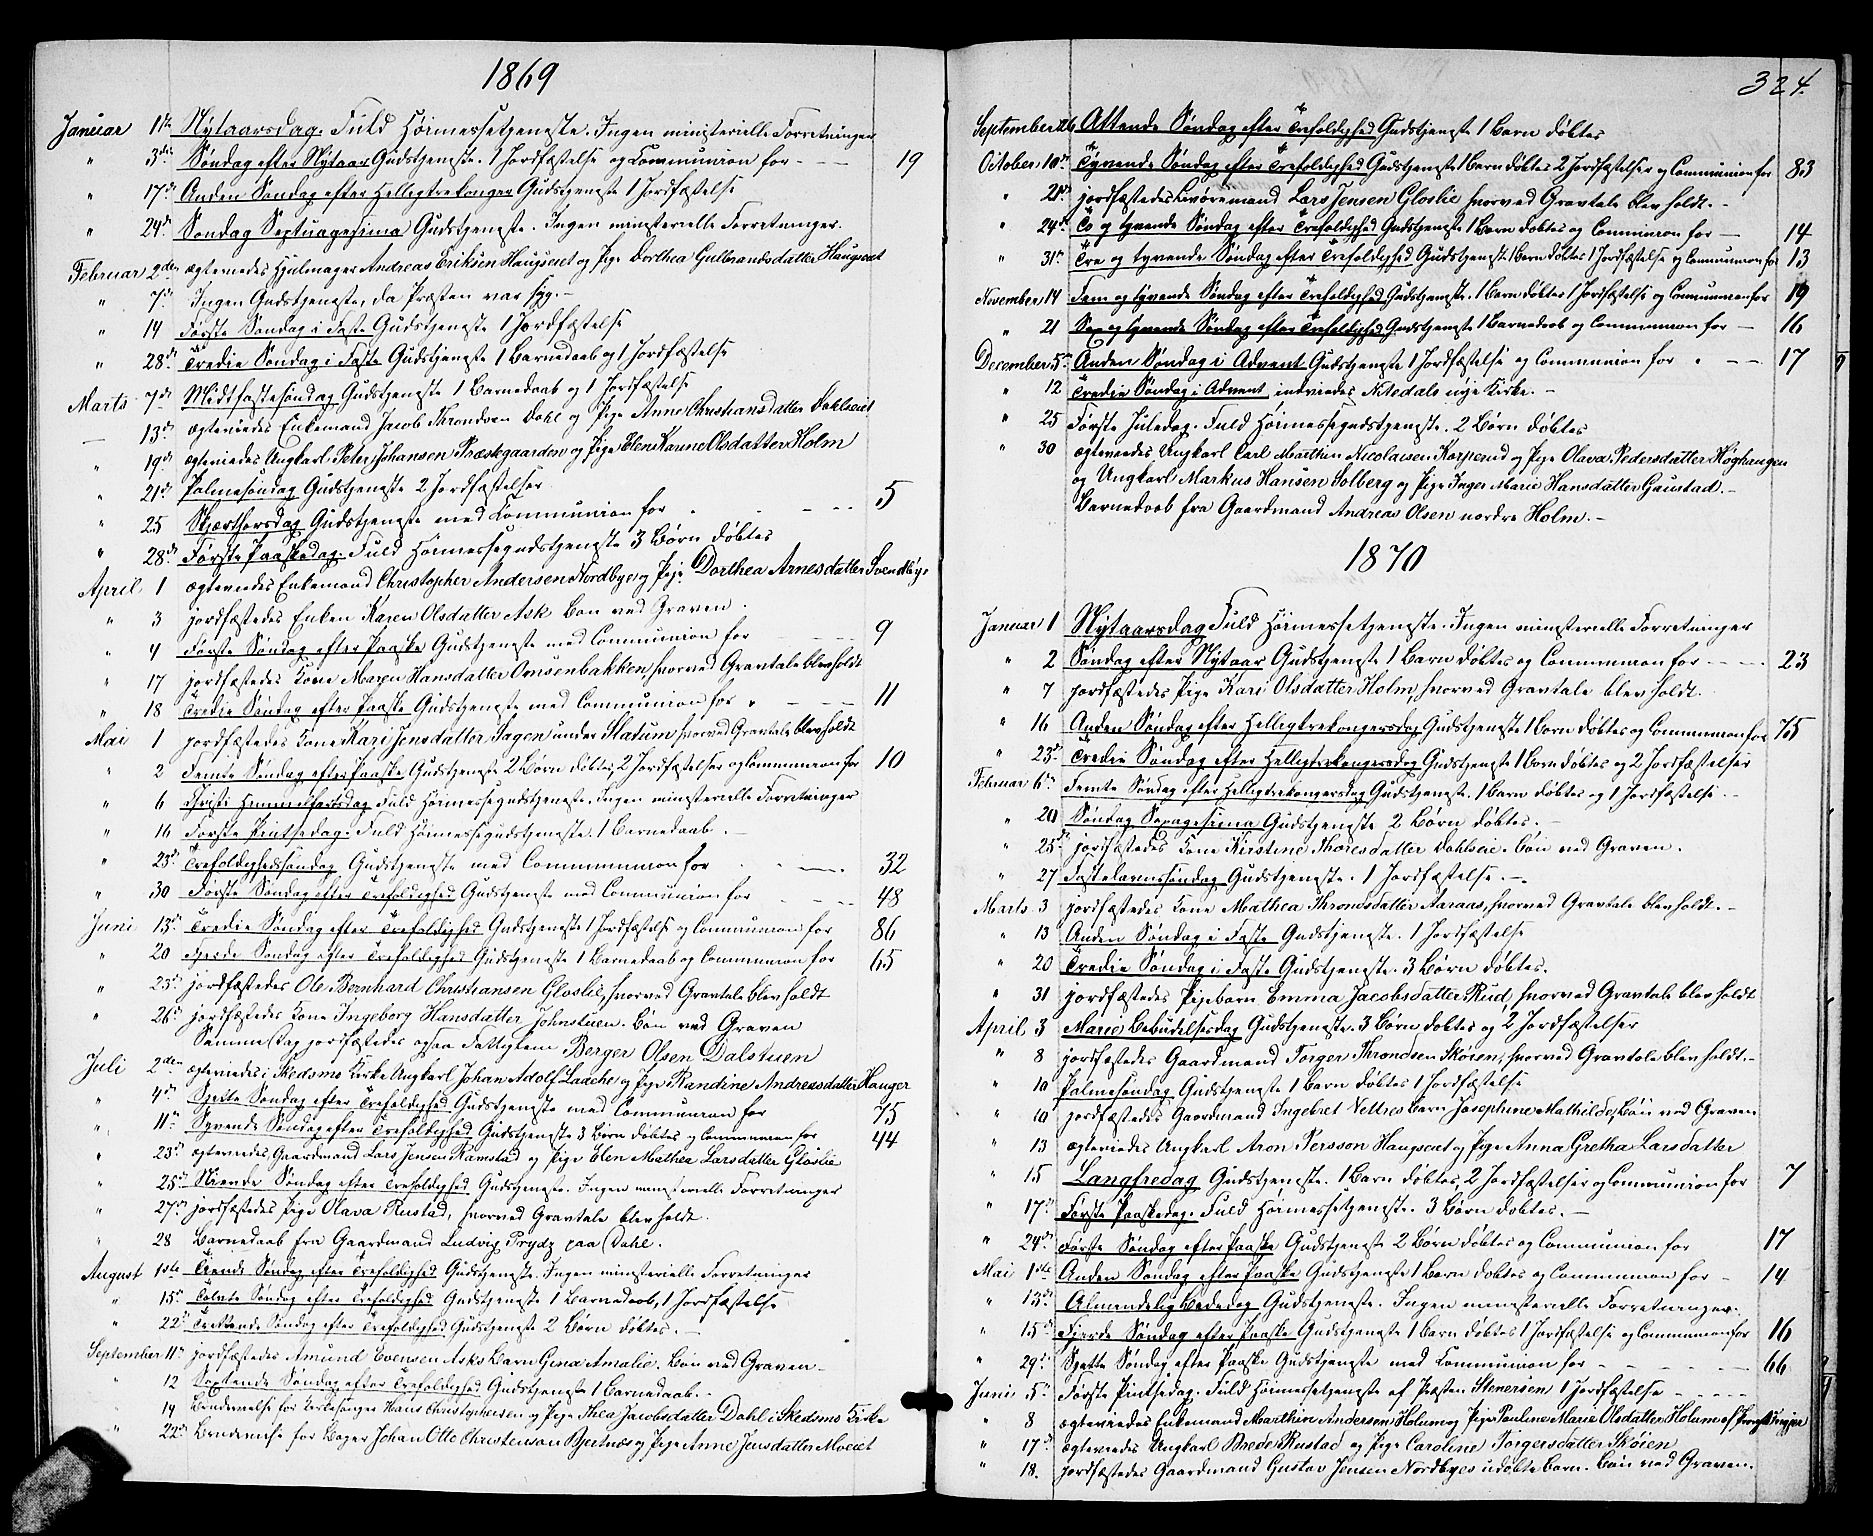 1869
Januar 1ste Nytaarsdag. Fuld Høimessetjeneste. Ingen ministerielle Forretninger
" 3die Søndag efter Nytaar Gudstjeneste. 1 Jordfæstelse og Communion for - - - 19
" 17de Anden Søndag efter Helligtrekonger Gudstjeneste 1 Jordfæstelse
" 24de Søndag Septuagesima Gudstjeneste. Ingen ministerielle Forretninger.
Februar 2den ægteviedes Hjulmager Andreas Eriksen Haugseiet og Pige Dorthea Gulbrandsdatter Haugseiet
" 7de Ingen Gudstjeneste, da Præsten var syg. -
" 14 Første Søndag i Faste Gudstjeneste 1 Jordfæstelse
" 28de Tredie Søndag i Faste Gudstjeneste 1 Barnedaab og 1 Jordfæstelse
Marts 7de Midtfastesøndag Gudstjeneste 1 Barnedaab og 1 Jordfæstelse
- 13de ægteviedes Enkemand Jacob Throndsen Dahl og Pige Anne Christiansdatter Dahlseiet
" 19de ægteviedes Ungkarl Peter Johansen Præstegaarden og Pige Elen Karine Olsdatter Holm
" 21de Palmesøndag Gudstjeneste 2 Jordfæstelser
" 25 Skjærthorsdag Gudstjeneste med Communion for - - - 5
" 28de Første Paaskedag. Fuld Høimessegudstjeneste 3 Børn døbtes
April 1 ægteviedes Enkemand Christopher Andersen Nordbye og Pige Dorthea Arnesdatter Svendbye
" 3 jordfæstedes Enken Karen Olsdatter Ask Bøn ved Graven.
" 4 Første Søndag efter Paaske Gudstjeneste med Communion for - - - 9
" 17 jordfæstedes Kone Maren Hansdatter Omsenbakken, hvorved Gravtale blev holdt
" 18 Tredie Søndag efter Paaske Gudstjeneste med Communion for " - - - 11
Mai 1 jordfæstedes Kone Kari Jensdatter Hagen under Slatum, hvorved Gravtale blev holdt
" 2 Femte Søndag efter Paaske Gudstjeneste 2 Børn døbtes, 2 Jordfæstelser og Communion for 10
" 6 Christi Himmelfartsdag Fuld Høimessegudstjeneste. Ingen ministerielle Forretninger
" 16 Første Pintsedag. Fuld Høimessegudstjeneste. 1 Barnedaab. -
" 23de Trefoldighedssøndag Gudstjeneste med Communion for - - 32
" 30 Første Søndag efter Trefoldighed Gudstjeneste med Communion for - - - 48
Juni 13de Tredie Søndag efter Trefoldighed Gudstjeneste 1 Jordfæstelse og Communion for 86
" 20 Fjerde Søndag efter Trefoldighed Gudstjeneste 1 Barnedaab og Communion for 65
" 25de jordfæstedes Ole Bernhard Christiansen Gloslie, hvorved Gravtale blev holdt
" 26de jordfæstedes Kone Ingeborg Hansdatter Johnstuen. Bøn ved Graven
Samme Dag jordfæstedes ogsaa Fattiglem Berger Olsen Dalstuen
Juli 2den ægteviedes i Skedsmo Kirke Ungkarl Johan Adolf Laache og Pige Randine Andreasdatter Hauger
" 4de Sjette Søndag efter Trefoldighed Gudstjeneste med Communion for 75
" 11te Syvende Søndag efter Trefoldighed Gudstjeneste 3 Børn døbtes og Communion for 44
" 23de ægteviedes Gaardmand Lars Jensen Ramstad og Pige Elen Mathea Larsdatter Gloslie
" 25de Niende Søndag efter Trefoldighed Gudstjeneste. Ingen ministerielle Forretninger
" 27de jordfæstedes Pige Olava Rustad, hvorved Gravtale blev holdt.
" 28 Barnedaab fra Gaardmand Ludvig Prydz paa Dahl.
August 1ste Tiende Søndag efter Trefoldighed Gudstjeneste. Ingen ministerielle Forretninger
" 15de Tolvte Søndag efter Trefoldighed Gudstjeneste 1 Barnedaab, 1 Jordfæstelse
" 22de Trettende Søndag efter Trefoldighed Gudstjeneste 2 Børn døbtes. -
September 11te jordfæstedes Amund Evensen Asks Barn Gina Amalie. Bøn ved Graven -
" 12 Sextende Søndag efter Trefoldighed Gudstjeneste 1 Barnedaab. -
" 19 for Kirkesanger Hans Christophersen og Pige Thea Jacobsdatter Dahl i Skedsmo Kirke
" 22de for Bager Johan Otto Christensen Bjertnæs og Pige Anne Jensdatter Moeiet
324.
September 26 Attende Søndag efter Trefoldighed Gudstjeneste 1 Barn døbtes
October 10de Tyvende Søndag efter Trefoldighed Gudstjeneste 1 Barn døbtes 2 Jordfæstelser og Communion for 83
" 21de jordfæstedes Livøremand Lars Jensen Gloslie hvorved Gravtale blev holdt. -
" 24de To og tyvende Søndag efter Trefoldighed Gudstjeneste 1 Barn døbtes og Communion for - 14
" 31te Tre og tyvende Søndag efter Trefoldighed Gudstjeneste 1 Barn døbtes 1 Jordfæstelse og Communion for 13
November 14 Fem og tyvende Søndag efter Trefoldighed Gudstjeneste. 1 Barn døbtes 1 Jordfæstelse og Communion for 19
" 21 Sex og tyvende Søndag efter Trefoldighed Gudstjeneste 1 Barnedaab og Communion for - 16
December 5te Anden Søndag i Advent Gudstjeneste 1 Jordfæstelse og Communion for " - - 17
" 12 Tredie Søndag i Advent indviedes Nitedals nye Kirke. -
" 25 Første Juledag. Fuld Høimessegudstjeneste. 2 Børn døbtes
" 30 ægteviedes Ungkarl Carl Marthin Nicolaisen Korperud og Pige Olava Pedersdatter Høghaugen
og Ungkarl Markus Hansen Solberg og Pige Inger Marie Hansdatter Gaustad. -
Barnedaab fra Gaardmand Andreas Olsen nordre Holm. -
1870
Januar 1 Nytaarsdag Fuld Høimessetjeneste. Ingen ministerielle Forretninger
" 2 Søndag efter Nytaar Gudstjeneste 1 Barn døbtes og Communion for - - - - 23
" 7 jordfæstedes Pige Kari Olsdatter Holm, hvorved Gravtale blev holdt.
" 16 Anden Søndag efter Helligtrekongersdag Gudstjeneste 1 Barn døbtes og Communion for 75
" 23de Tredie Søndag efter Helligtrekongersdag Gudstjeneste 1 Barn døbtes og 2 Jordfæstelser
Februar 6te Femte Søndag efter Helligtrekongersdag Gudstjeneste. 1 Barn døbtes og 1 Jordfæstelse. -
" 20 Søndag Sexagesima Gudstjeneste 2 Børn døbtes. -
" 25de jordfæstedes Kone Kirstine Thoresdatter Dahlseie. Bøn ved Graven.
" 27 Fastelavnssøndag Gudstjeneste. 1 Jordfæstelse. -
Marts 3 jordfæstedes Kone Mathea Throndsdatter Aaraas, hvorved Gravtale blev holdt. -
" 13 Anden Søndag i Faste Gudstjeneste. 1 Jordfæstelse
" 20 Tredie Søndag i Faste Gudstjeneste. 3 Børn døbtes.
" 31 jordfæstedes Pigebarn Emma Jacobsdatter Rud, hvorved Gravtale blev holdt
April 3 Marie Bebudelsesdag Gudstjeneste. 3 Børn døbtes og 2 Jordfæstelser
" 8 jordfæstedes Gaardmand Torger Throndsen Skøien, hvorved Gravtale blev holdt. -
" 10 Palmesøndag Gudstjeneste 1 Barn døbtes 1 Jordfæstelse
" 10 jordfæstedes Gaardmand Ingebret Nettres Barn Josephine Mathilde, Bøn ved Graven
" 13 ægteviedes Ungkarl Aron Persson Haugseiet og Pige Anna Gretha Larsdatter
" 15 Langfredag Gudstjeneste. 1 Barn døbtes, 2 Jordfæstelser og Communion for 7
" 17de Første Paaskedag. Fuld Høimessetjeneste. 3 Børn døbtes. -
" 24de Første Søndag efter Paaske Gudstjeneste 2 Børn døbtes og Communion for 17
Mai 1ste Anden Søndag efter Paaske Gudstjeneste 1 Barn døbtes og Communion for - 14
" 13de Almindelig Bededag Gudstjeneste. Ingen ministerielle Forretninger.
" 15de Fjerde Søndag efter Paaske Gudstjeneste 1 Barn døbtes 1 Jordfæstelse og Communion for 16
" 29de Sjette Søndag efter Paaske Gudstjeneste med Communion for - - - - 66
Juni 5te Første Pintsedag. Fuld Høimessetjeneste af Præsten Stenersen 1 Jordfæstelse - - - -
" 8 ægteviedes Enkemand Marthin Andersen Holum og Pige Pauline Marie Olsdatter Holum af
" 17de ægteviedes Ungkarl Brede Rustad og Pige Caroline Torgersdatter Skøien
" 18. jordfæstedes Gaardmand Gustav Jensen Nordbyes udøbte Barn. Bøn ved Graven.